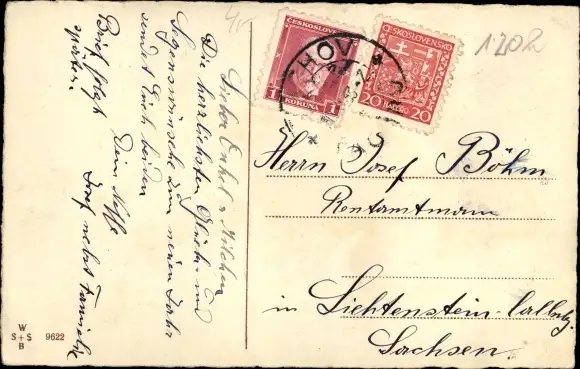 Lieber Onkel u. Mölchen
Die herzlichsten Glück- und
Segenswünsche zum neuen Jahr
sendet Euch beiden
Dein Neffe
Josef nebst Familie
Brief folgt
später.
ČESKOSLOVENSKO
1 KORUNA 1
ČESKOSLOVENSKO
20 HALÉŘŮ 20
HOV
1202
Herrn Josef Böhm
Rentamtmann
in Lichtenstein-Callnbg.
Sachsen.
W
S+S 9622
B